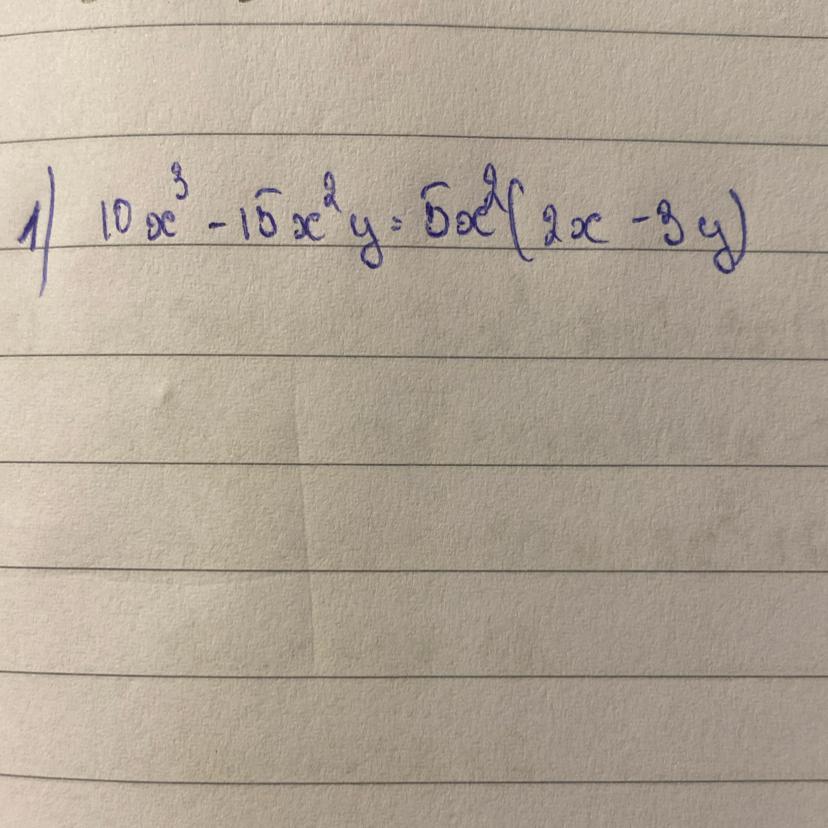 1) 10x³ - 15x²y = 5x²(2x - 3y)